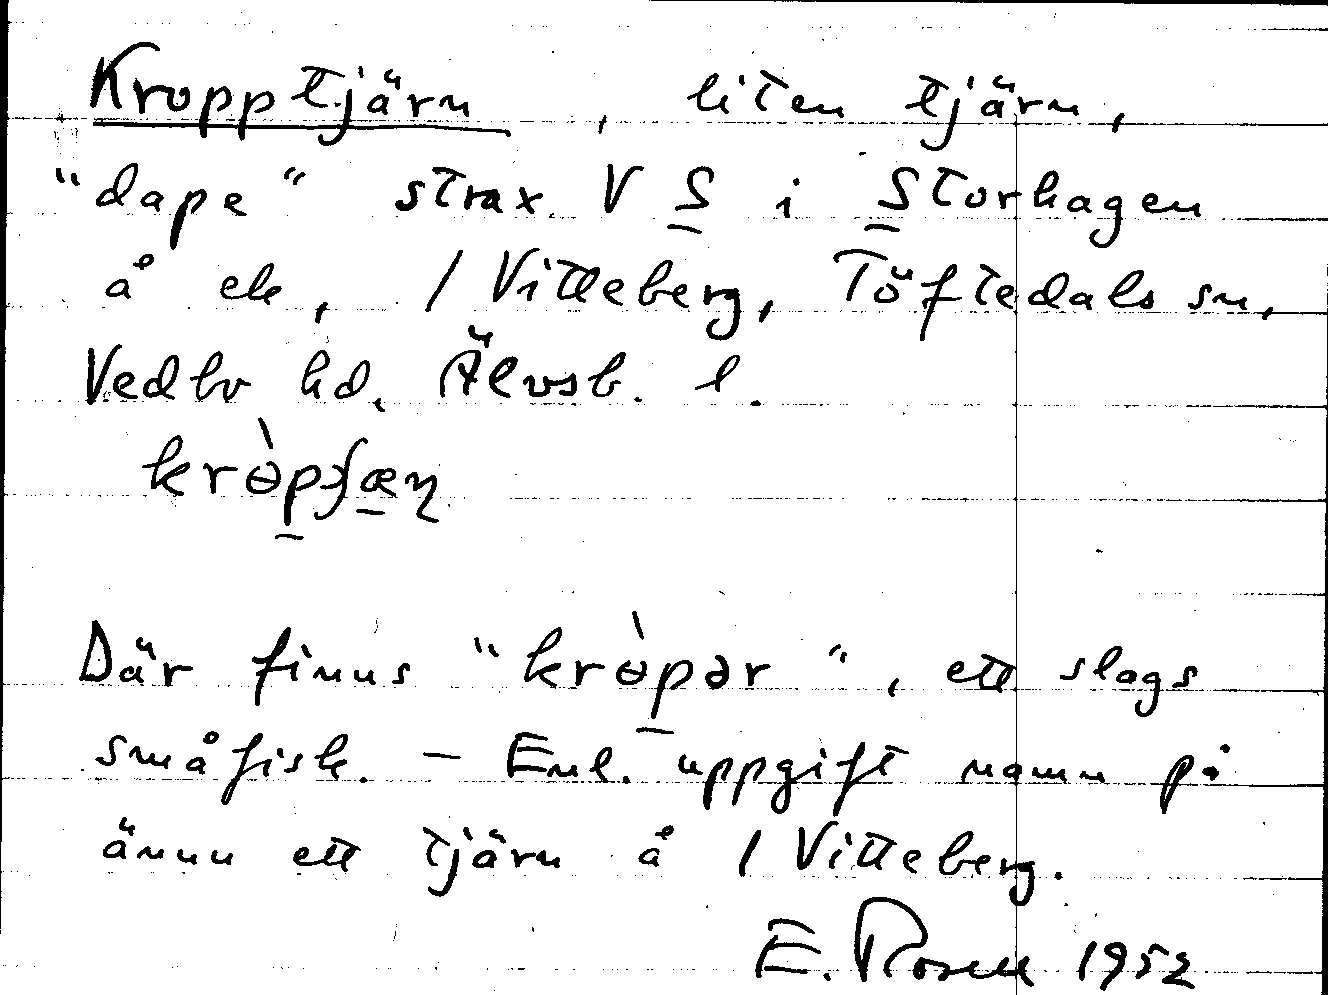 Kropptjärn, liten tjärn,
"dape" strax V S i Storhagen
å ek, / Vitteberg, Töftedals sn,
Vedbo hd, Älvsb. l.
Där finns "krɵ̀pər", ett slags
småfisk. – Enl. uppgift namn på
ännu ett tjärn å / Vitteberg.
E. Rosell 1952